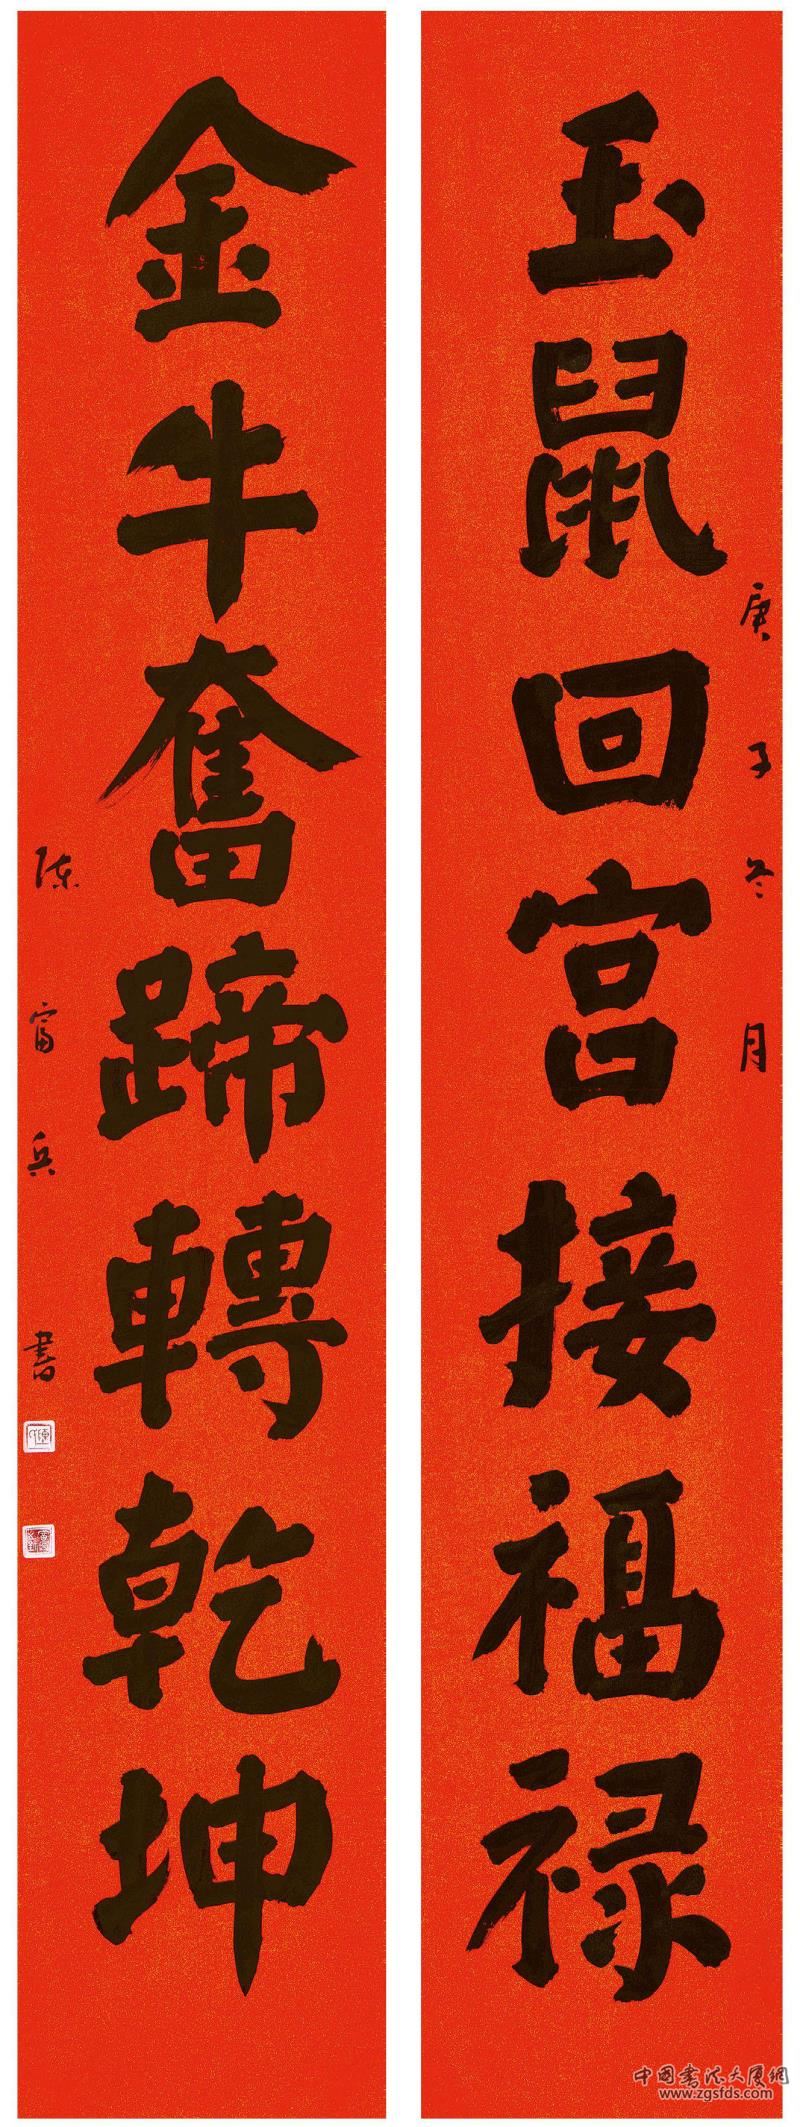 庚子冬月
玉鼠回宫接福禄
金牛奮蹄轉乾坤
陈富兵书
中國書法大厦網
www.zgsfds.com